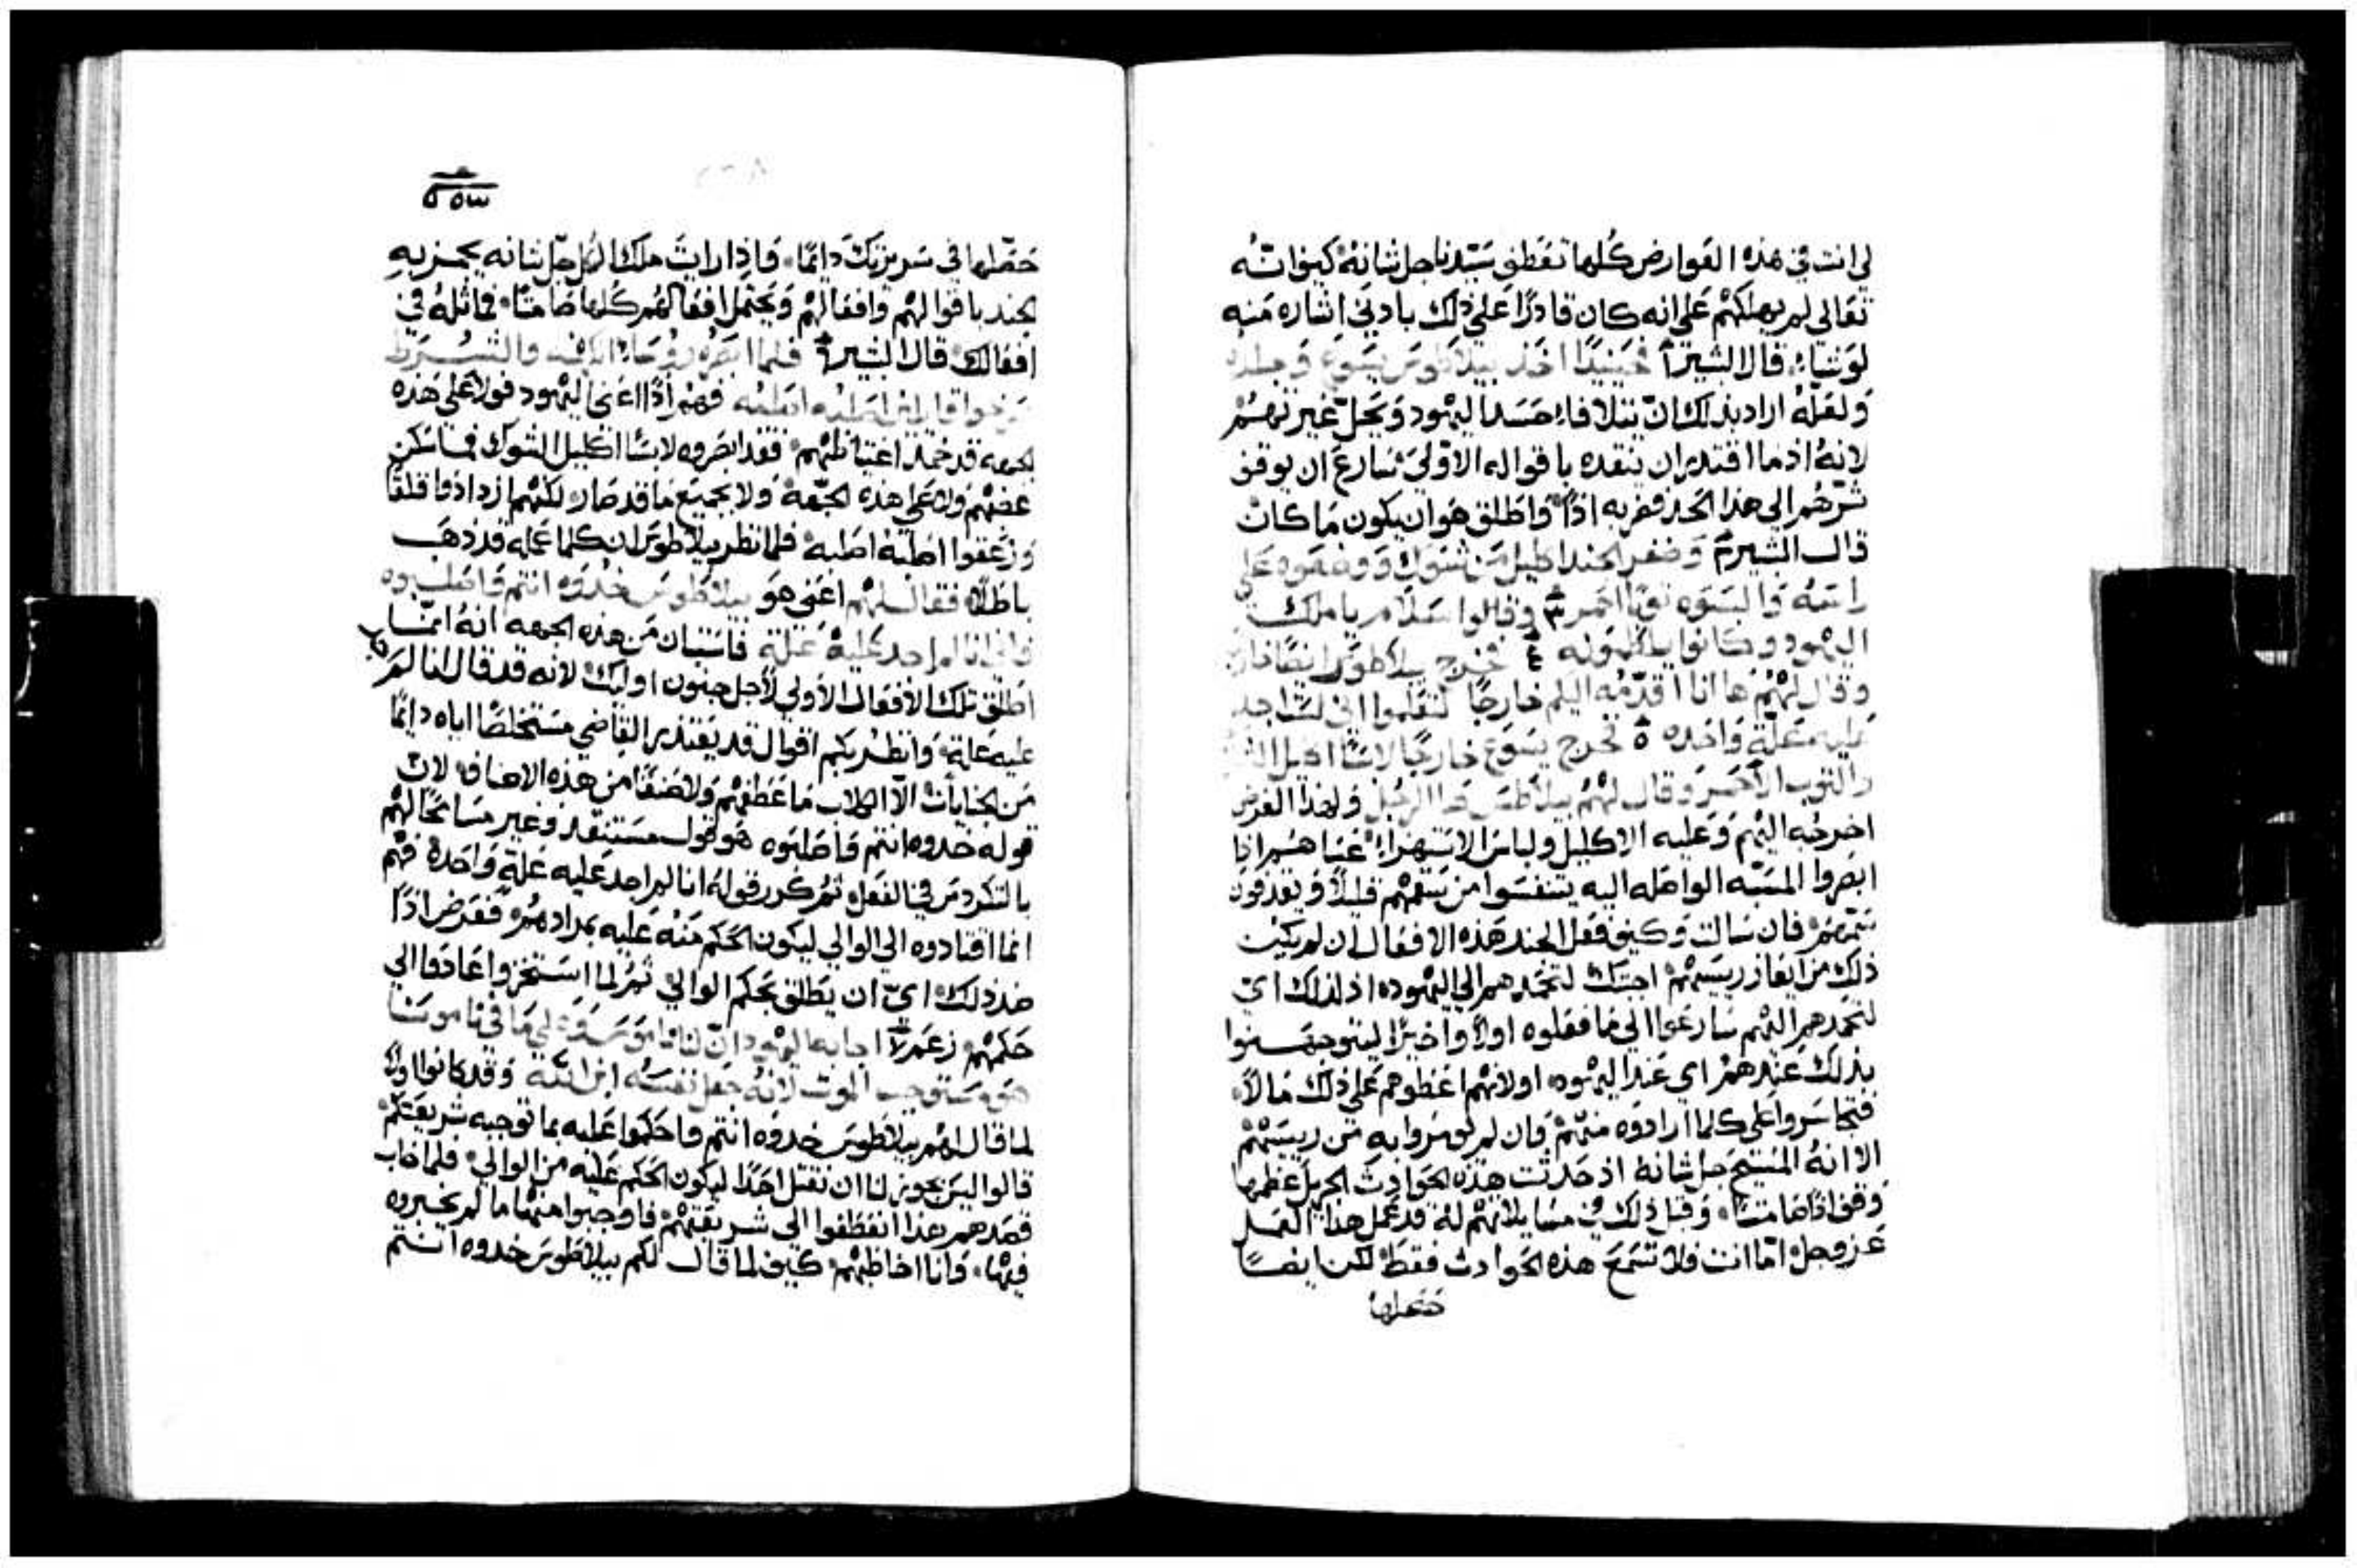 لي انت في هذه العوارض كلها تفطن سيدنا جل شانه كيف انه
تعالي لم يهلكهم علي انه كان قادرًا علي ذلك بادني اشاره منه
لو شاء قال البشير ١ فحينيذٍ اخذ بيلاطوس يسوع وجلده
ولعله اراد بذلك ان يتلافا حسد اليهود ويحل غيرتهم
لانه اذ ما اقتدر ان ينقده باقواله الاولي سارع ان يوقف
شرهم الي هذا الحد فضربه اذًا واطلق هو ان يكون ما كان
قال البشير ٢ وضفر الجند اكليل من شوك ووضعوه علي
راسه والبسوه ثوبًا احمر ٣ وقالوا سلام يا ملك
اليهود وكانوا يلطموله ٤ فخرج بيلاطوس ايضًا خارج
وقال لهم ها انا اقدمه اليلم خارجًا لتعلموا اني لست اجد
عليه علة واحده ٥ فخرج يسوع خارجًا لابسًا اكليل الشوك
والثوب الاحمر وقال لهم بيلاطس هوذا الرجل ولهذا الغرض
اخرجه اليهم وعليه الاكليل ولباس الاستهزاء عساهم اذا
ابصروا المسبه الواصله اليه يتنفسوا من سقمهم قليلاً ويقذفون
سمهم فان سالت وكيف فعل الجند هذه الافعال ان لم يكن
ذلك من ايعاز رييسهم اجبتك لتحمدهم الي اليهود اذ لذلك اي
لتحمدهم اليهم سارعوا الي ما فعلوه اولاً واخيرًا ليتوجهوا
بذلك عندهم اي عند اليهود او لانهم اعطوهم علي ذلك مالاً
فتجاسروا علي كلما ارادوه منهم وان لم يومروا به من رييسهم
الا انه المسيح جل شانه اذ حدثت هذه الحوادث الجزيل عظمها
وقف اذًا صامتًا وقبل ذلك في مسايلاتهم له قد عمل هذا العمل
عز وجل اما انت فلا تسمع هذه الحوادث فقط لكن ايضًا
حصلها
٥٥٣
حصلها في سريرتك دايمًا فاذا رايت ملك الكل جل شانه يهزو به
الجند باقوالهم وافعالهم ويحتمل افعالهم كلها صامتًا فماثله في
افعالك قال البشير ٦ فلما ابصره روسا الكهنه والشرط
صرخوا قايلين اصلبه اصلبه فهم اذًا اعني اليهود فولا علي هذه
الجهه قد خمد اغتياظهم فقد ابصروه لابسًا اكليل الشوك فما سكن
غضبهم ولا علي هذه الجهه ولا بجميع ما قد صار لكنهم ازدادوا قلقًا
وزعقوا اصلبه اصلبه فلما نظر بيلاطوس ان كلما عمله قد ذهب
باطلاً فقال لهم اعني هو بيلاطوس خدوه انتم واصلبوه
فاني انا لم اجد عليه علة فاستبان من هذه الجهه انه انما
اطلق تلك الافعال الاولي لاجل جنون اوليك لانه قد قال انا لم اجد
عليه علة وانظر بكم اقوال قد يعتذر القاضي مستخلصًا اياه دايمًا
من الجنايات الا الكلاب ما عطفهم ولا صنفًا من هذه الاصناف لان
قوله خدوه انتم واصلبوه هو قول مستنقذ وغير مسامحًا لهم
بالتكردس في الفعل ثم كرر قوله انا لم اجد عليه علة واحدة فهم
انما اقتادوه الي الوالي ليكون الحكم منه عليه بمرادهم فعرض اذًا
ضد ذلك اي ان يطلق بحكم الوالي ثم لما استخزوا عادوا الي
حكمهم زعم ٧ اجابه اليهود ان لنا ناموس وعلي ما في ناموسنا
هو مستوجب الموت لانه جعل نفسه ابن الله وقد كانوا اولاً
لما قال لهم بيلاطوس خدوه انتم واحكموا عليه بما توجبه شريعتكم
قالوا ليس يجوز لنا ان نقتل احدًا ليكون الحكم عليه من الوالي فلما خاب
قصدهم هذا انعطفوا الي شريعتهم فاوجبوا منها ما لم يخبروه
فيها وانا اخاطبهم كيف لما قال لكم بيلاطوس خدوه انتم